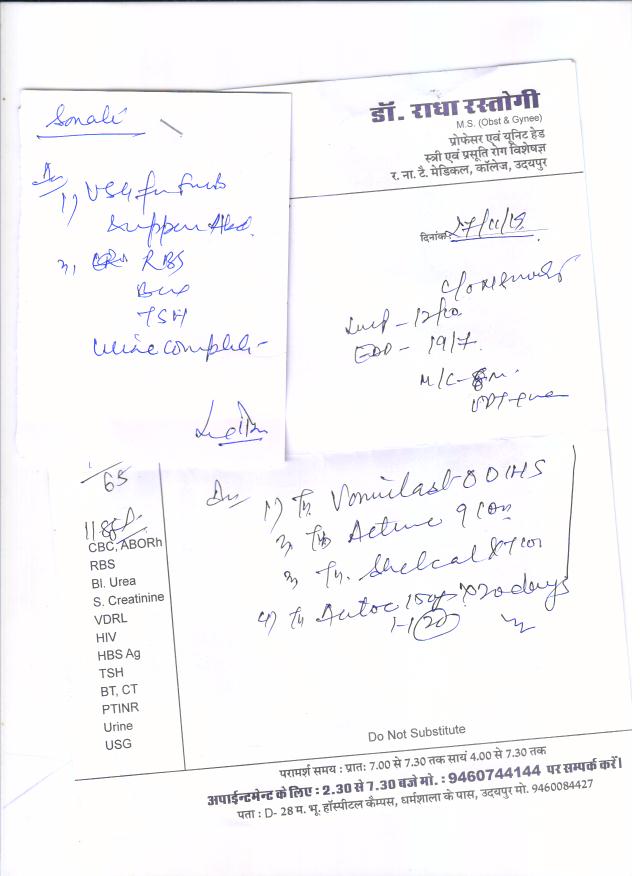 Sonali
1) USG for
upper Abd.
2) RBS
TSH
Urine complete
डॉ. राधा रस्तोगी
M.S. (Obst & Gynee)
प्रोफेसर एवं यूनिट हेड
स्त्री एवं प्रसूति रोग विशेषज्ञ
र. ना. टै. मेडिकल, कॉलेज, उदयपुर
दिनांक 27/11/19
LMP - 12/10
EDD - 19/7
M/C-
UPT +ve
65
CBC, ABORh
RBS
Bl. Urea
S. Creatinine
VDRL
HIV
HBS Ag
TSH
BT, CT
PTINR
Urine
USG
1) Tb. Vomilast
2) Tb
3) Tb. Shelcal
4) Tb x 20 days
1-1 20
Do Not Substitute
परामर्श समय : प्रात: 7.00 से 7.30 तक सायं 4.00 से 7.30 तक
अपाईन्टमेन्ट के लिए : 2.30 से 7.30 बजे मो. : 9460744144 पर सम्पर्क करें।
पता : D- 28 म. भू. हॉस्पीटल कैम्पस, धर्मशाला के पास, उदयपुर मो. 9460084427